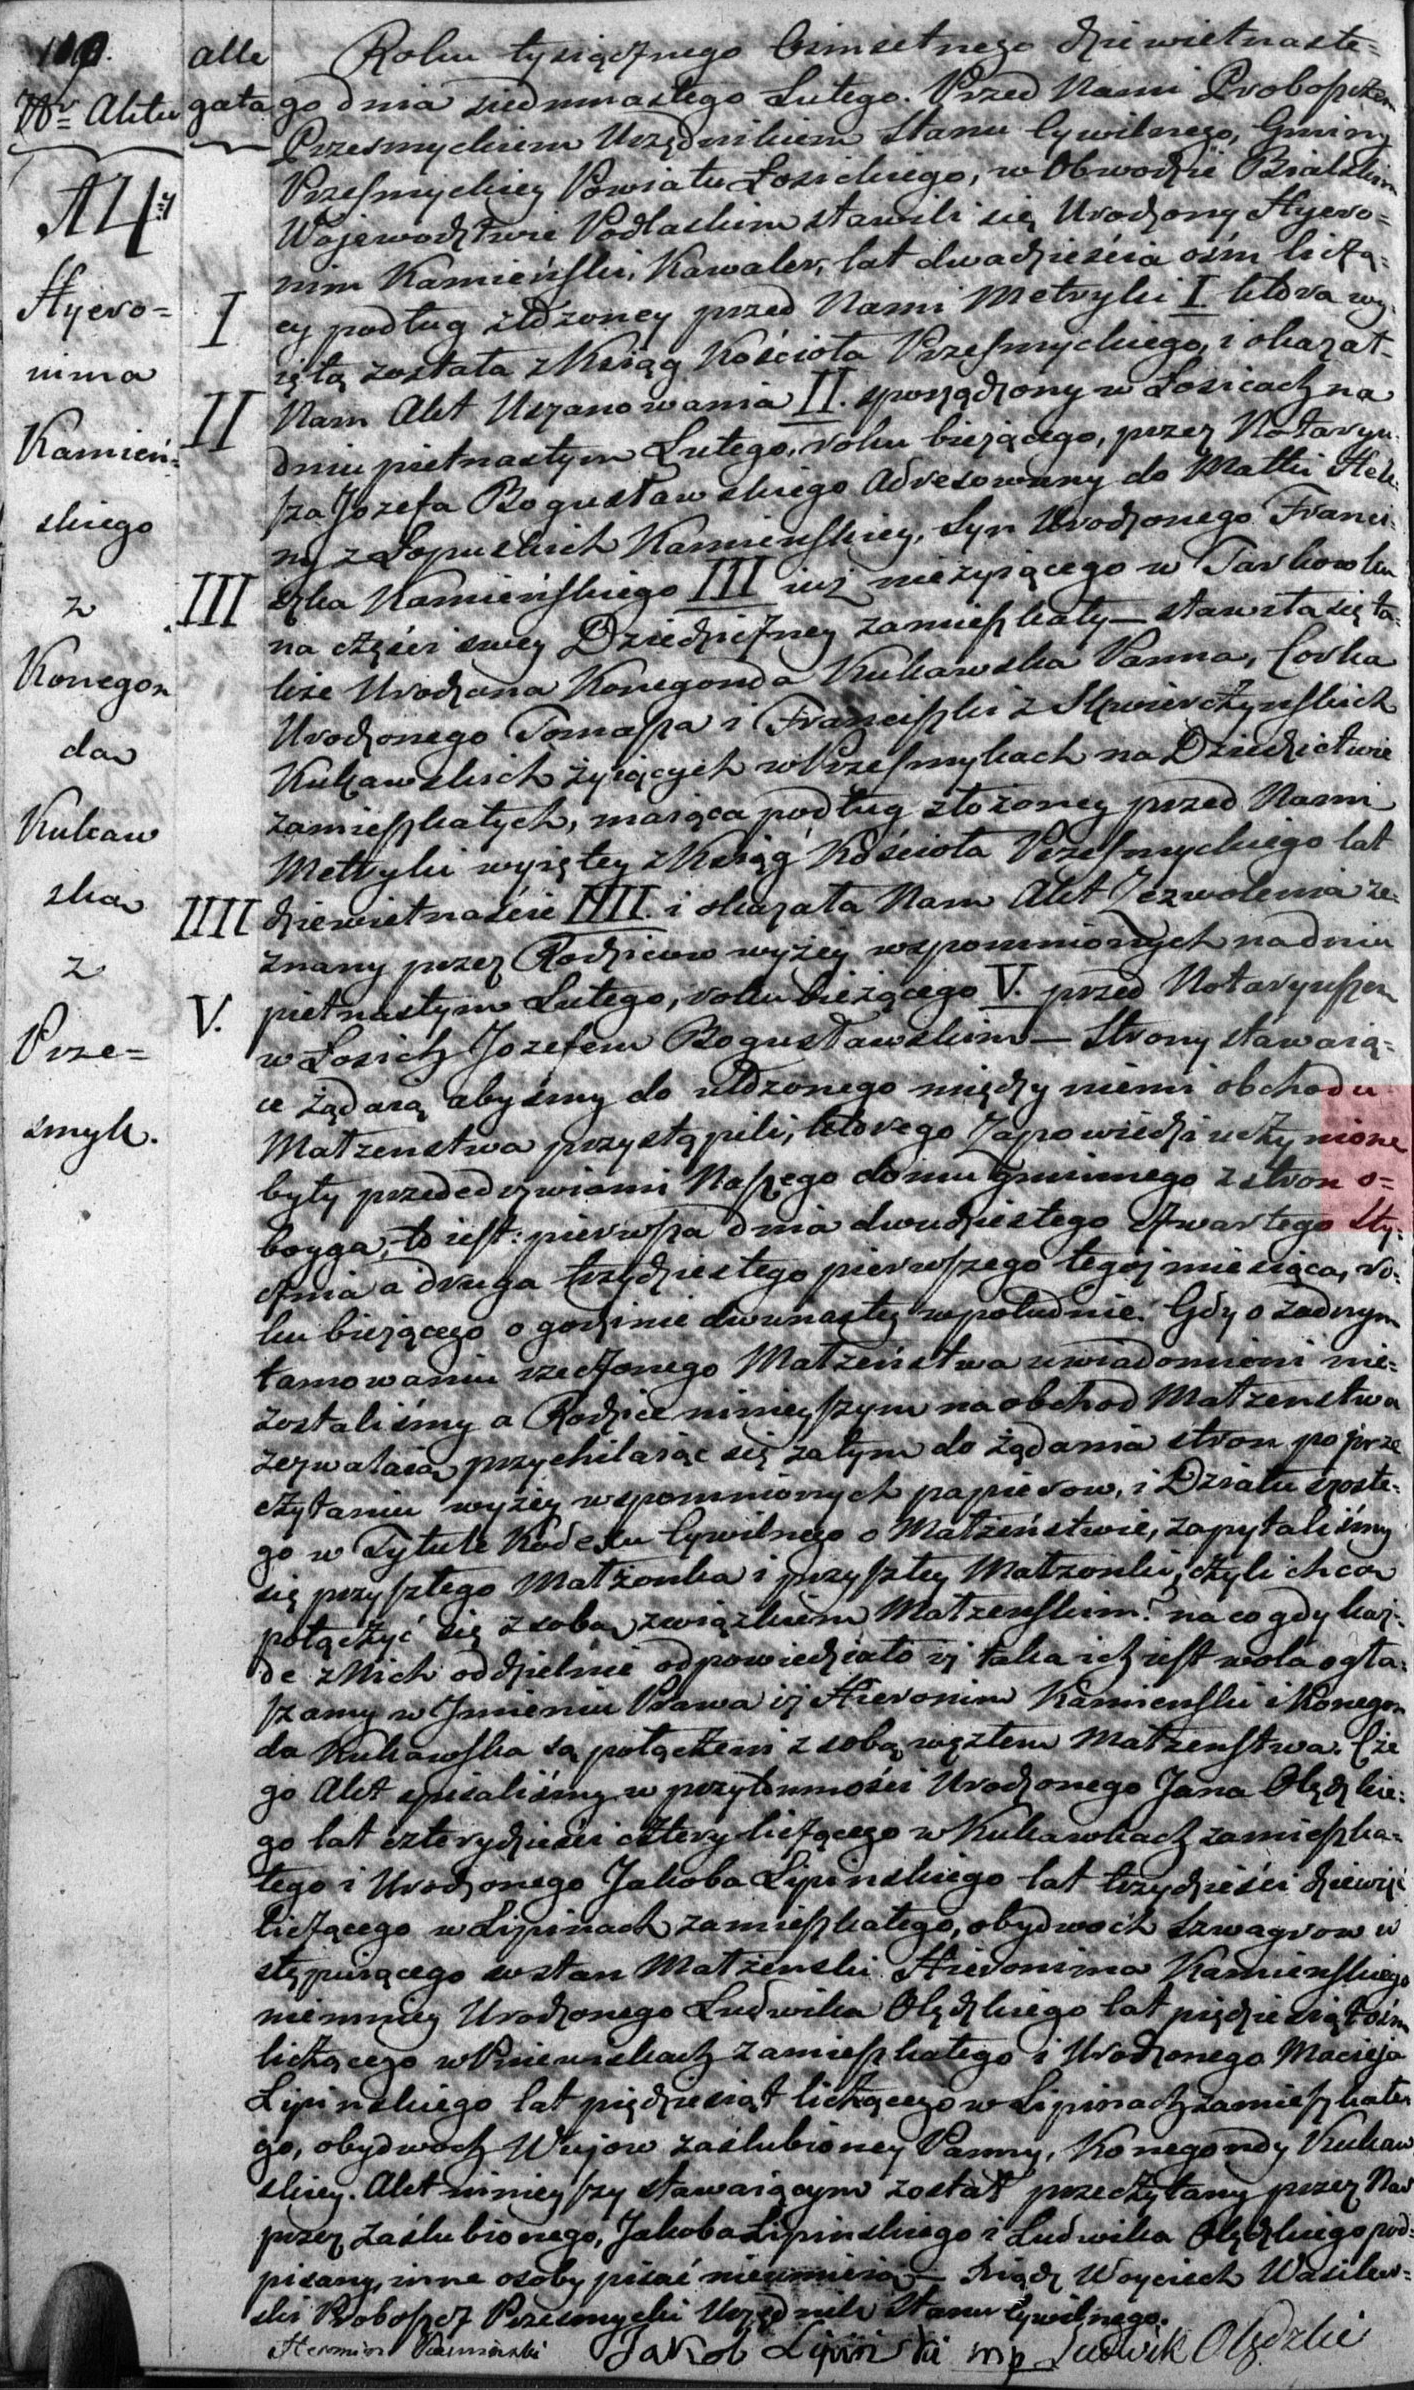 109.
Nr Aktu
A 4ty
Hyero=
nima
Kamień=
skiego
z
Konegon
da
Kukaw
ska
z
Prze=
smyk.
alle
gata
I
II
III
IIII
V.
Roku tysiącznego Osimsetnego dziewietnaste=
go dnia siedmnastego Lutego. Przed Nami Proboszczem
Przesmyckiem Urzędnikiem Stanu Cywilnego, Gminy
Przesmyckiey Powiatu Łosickiego, w Obwodzie Bialskim
Wojewodztwie Podlaskim stawili się Urodzony Hyero=
nim Kamieński, Kawaler, lat dwadzieścia ośm liczą=
cy podług złożoney przed Nami Metryki I która wy=
ięta została z Ksiąg Kościoła Przesmyckiego, i okazał
Nam Akt Uszanowania II. sporządzony w Łosicach na
dniu pietnastym Lutego, roku bieżącego, przez Notaryu=
sza Jozefa Bogusławskiego adresowany do Matki Hele=
ny z Łopuskich Kamienskiey, Syn Urodzonego Franci=
szka Kamieńskiego III iuż nieżyiącego w Tarkowku
na części swey Dziedziczney zamieszkały — stawiła się ta=
kże Urodzona Konegonda Kukawska Panna, Corka
Urodzonego Tomasza i Franciszki z Skwierczynskich
Kukawskich żyiących w Przesmykach na Dziedzictwie
zamieszkałych, maiąca podług złożoney przed Nami
Metryki wyiętey z Ksiąg Kościoła Przesmyckiego lat
dziewietnaście IIII. i okazała Nam Akt Zezwolenia ze=
znany przez Rodzicow wyżey wspomnionych na dniu
pietnastym Lutego, roku bieżącego V. przed Notaryuszem
w Łosicz Jozefem Bogusławskim — Strony stawaią=
ce żądaią abyśmy do ułożonego między niemi obchodu
Małżenstwa przystąpili, którego Zapowiedzi uczynione
były przededrzwiami Naszego domu gminnego z stron o=
boyga, to iest: pierwsza dnia dwudziestego czwartego Sty=
cznia a druga trzydziestego pierwszego tegoż miesiąca, ro=
ku bieżącego o godzinie dwunastey w południe. Gdy o żadnym
tamowaniu rzeczonego Małżeństwa uwiadomieni nie=
zostaliśmy a Rodzice ninieyszym na obchod Małżenstwa
zezwalaią, przychilaiąc się zatym do żądania stron po prze
czytaniu wyżey wspomnionych papierow, i Działu szoste=
go w Tytule Kodexu Cywilnego o Małżeństwie, zapytaliśmy
się przyszłego Małżonka i przyszłey Małżonki, czyli chcą
połączyć się z sobą związkiem Małżenskim? na co gdy każ=
de z Nich oddzielnie odpowiedziało iż taka ich iest wola ogła=
szamy w Imieniu Prawa iż Hieronim Kamienski i Konegon
da Kukawska są połączeni z sobą węzłem Małżenstwa. Cze
go Akt spisaliśmy w przytomności Urodzonego Jana Olędzkie=
go lat czterydzieści cztery liczącego w Kukawkach zamieszka=
łego i Urodzonego Jakoba Lipinskiego lat trzydzieści dziewięć
liczącego w Lipinach zamieszkałego, obydwóch Szwagrow w
stępuiącego w stan Małżenski Hieronima Kamienskiego
niemniey Urodzonego Ludwika Olędzkiego lat pięćdziesiąt ośm
liczącego w Pniewiskach zamieszkałego i Urodzonego Macieja
Lipinskiego lat pięćdziesiąt liczącego w Lipinach zamieszkałe
go, obydwoch Wujow zaślubioney Panny, Konegondy Kukaw
skiey. Akt ninieyszy stawaiącym został przeczytany przez Nas
przez zaślubionego, Jakoba Lipinskiego i Ludwika Olędzkiego pod=
pisany, inne osoby pisać nieumieią — Xiądz Woyciech Wasilew=
ski Proboszcz Przesmycki Urzędnik Stanu Cywilnego.
Hieronim Kamieński Jakob Lipinski mp Ludwik Olędzki